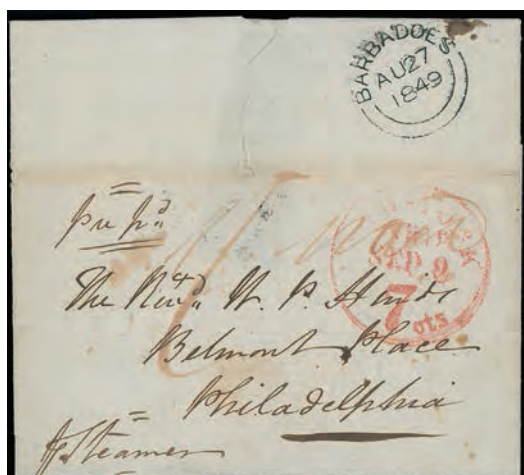 BARBADOES
AU 27
1849
pre pd
SHIP
SEP 9
7
cts
The Revd. W. P. Hinds
Belmont Place
Philadelphia
Steamer